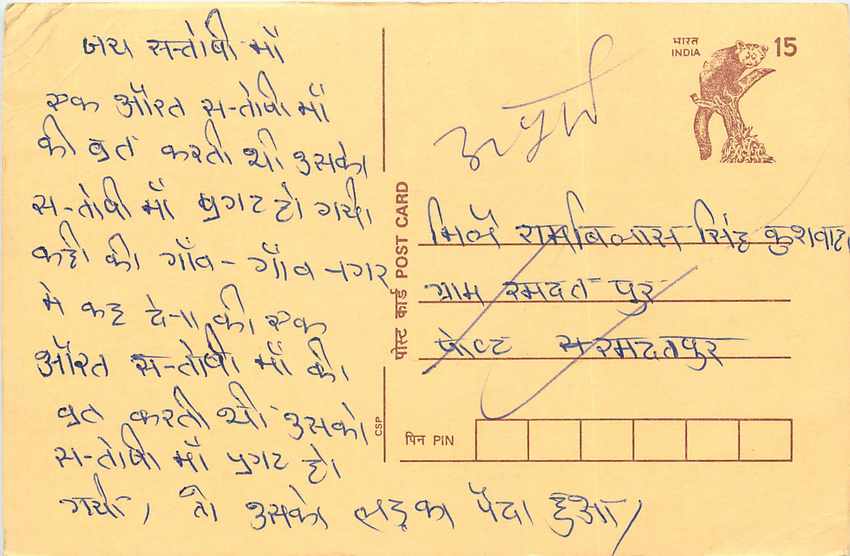 जय सन्तोषी माँ
एक औरत सन्तोषी माँ
की व्रत करती थी उसको
सन्तोषी माँ प्रगट हो गयी
कही की गाँव-गाँव नगर
मे कह देना की एक
औरत सन्तोषी माँ की
व्रत करती थी उसको
सन्तोषी माँ प्रगट हो
गयी, तो उसको लड़का पैदा हुआ,
भारत
INDIA
15
अपूर्ण
पोस्ट कार्ड POST CARD
CSP
मिले रामबिलास सिंह कुशवाह
ग्राम रमदत पुर
पोस्ट सरमदतपुर
पिन PIN